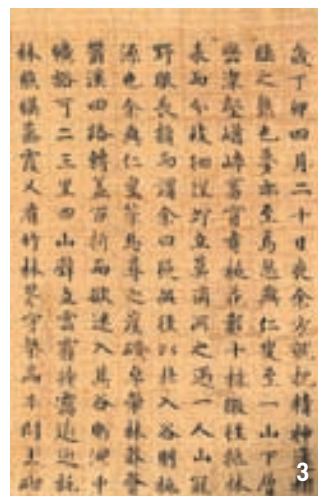 歲丁卯四月二十日夜余方就枕精神
睡之熟也夢亦至焉忽與仁叟至一山下層
巒深壑崷崒窈窅有桃花數十株微徑抵林
表而分岐徊徨竚立莫適所之遇一人山冠
野服長揖而謂余曰從此徑以北入谷則桃
源也余與仁叟策馬尋之崖磴卓犖林莽薈
鬱溪回路轉盖百折而欲迷入其谷則洞中
曠豁可二三里四山壁立雲霧掩靄遠近桃
林照暎蒸霞又有竹林茅宇柴扃半開土砌
3